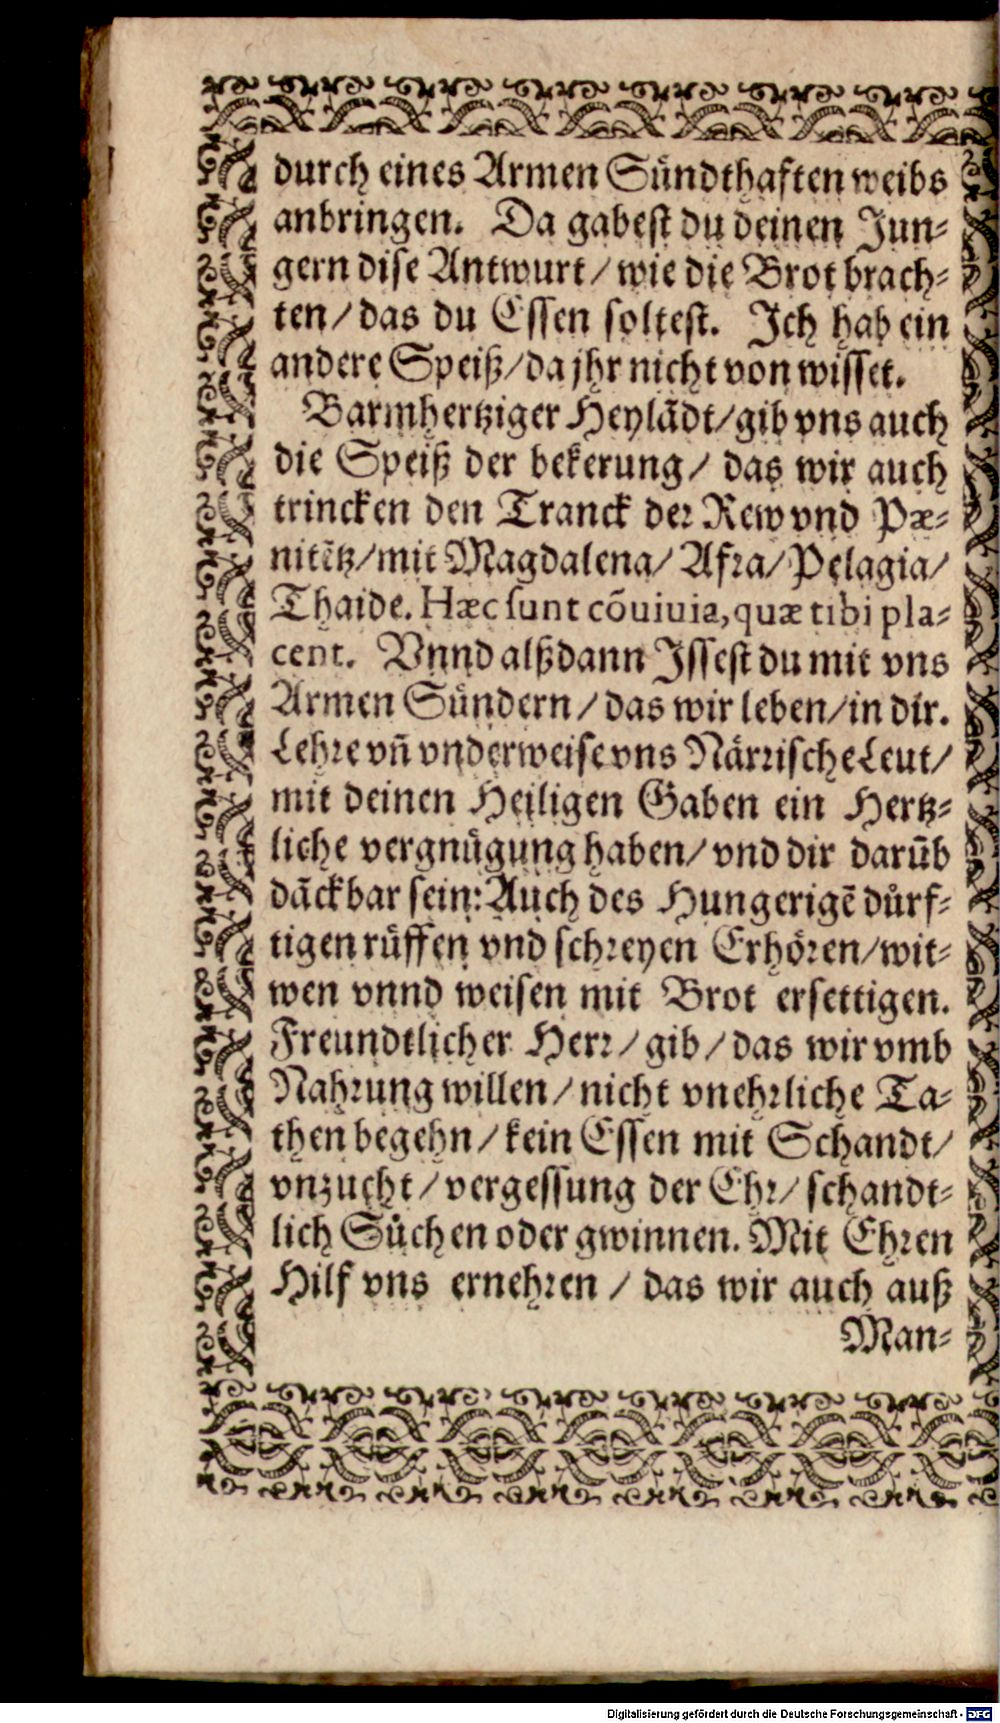 durch eines Armen Sündthaften weibs
anbringen. Da gabest du deinen Jun⸗
gern dise Antwurt / wie die Brot brach⸗
ten / das du Essen soltest. Ich hab ein
andere Speiß / da jhr nicht von wisset.
Barmhertziger Heylãdt / gib vns auch
die Speiß der bekerung / das wir auch
trincken den Tranck der Rew vnd Pæ⸗
nitẽtz / mit Magdalena / Afra / Pelagia /
Thaide. Hæc sunt cõuiuia, quæ tibi pla⸗
cent. Vnnd alßdann Issest du mit vns
Armen Sündern / das wir leben / in dir.
Lehre vñ vnderweise vns Närrische Leut /
mit deinen Heiligen Gaben ein Hertz⸗
liche vergnügung haben / vnd dir darũb
dãckbar sein: Auch des Hungerigẽ dürf⸗
tigen rüffen vnd schreyen Erhören / wit⸗
wen vnnd weisen mit Brot ersettigen.
Freundtlicher Herr / gib / das wir vmb
Nahrung willen / nicht vnehrliche Ta⸗
then begehn / kein Essen mit Schandt /
vnzucht / vergessung der Ehr / schandt⸗
lich Süchen oder gwinnen. Mit Ehren
Hilf vns ernehren / das wir auch auß
Man⸗
Digitalisierung gefördert durch die Deutsche Forschungsgemeinschaft - DFG